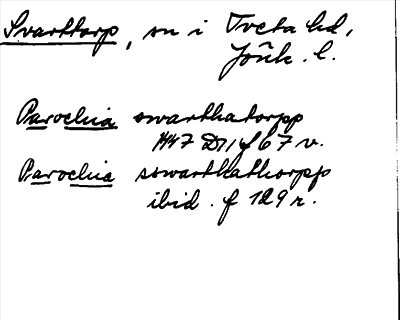 Svarttorp, sn i Tveta hd,
Jönk. l.
Parochia swarthatorpp
1447 D 11 f 67 v.
Parochia sswarthathorpp
ibid. f 129 r.